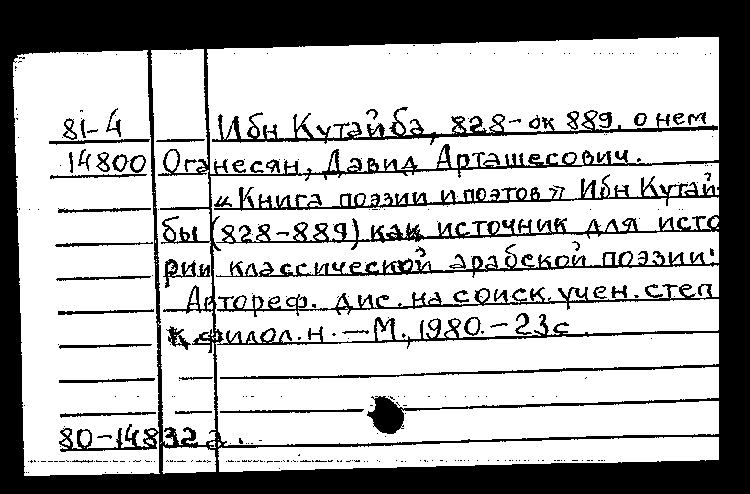 81-4 Ибн Кутайба, 828-ок 889. о нем
14800 Оганесян, Давид Арташесович.
«Книга поэзии и поэтов» Ибн Кутай-
бы (828-889) как источник для исто
рии классической арабской поэзии:
Автореф. дис. на соиск. учен. степ
к.филол.н. — М., 1980. - 23с.
80-14832а.